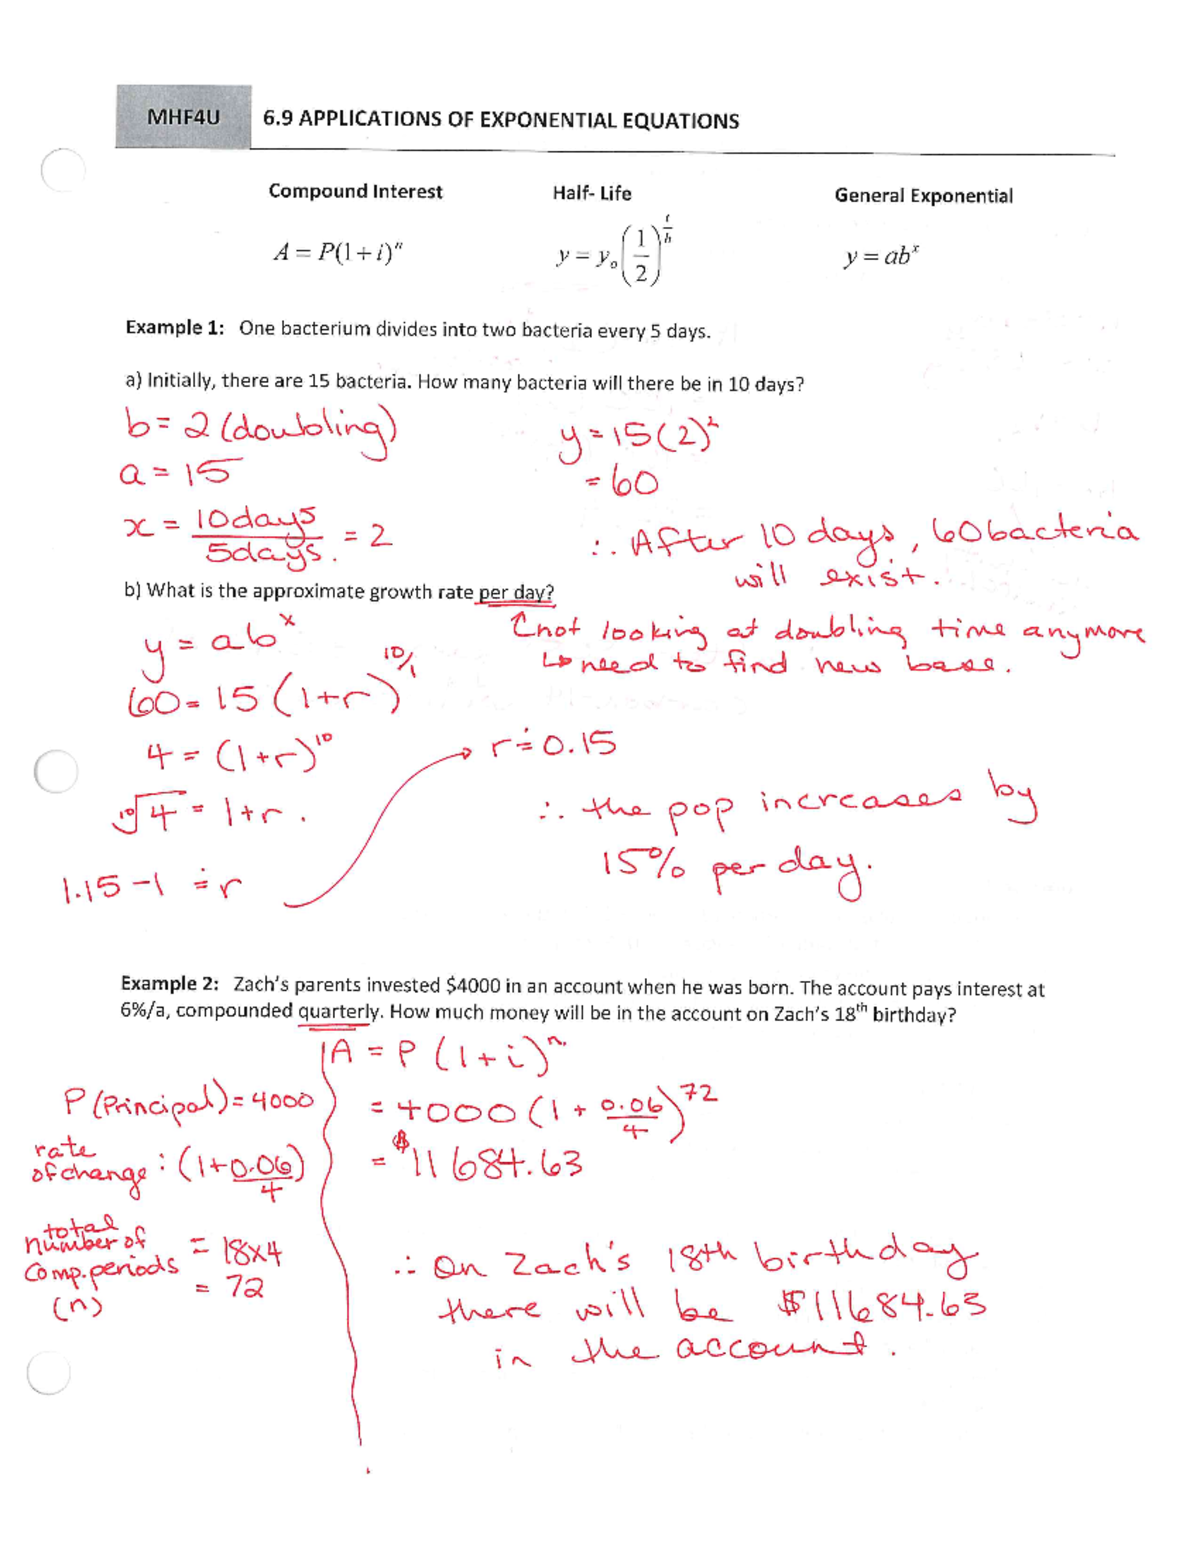 MHF4U 6.9 APPLICATIONS OF EXPONENTIAL EQUATIONS
Compound Interest Half- Life General Exponential
A = P(1+i)^n y = y_o(1/2)^(t/h) y = ab^x
Example 1: One bacterium divides into two bacteria every 5 days.
a) Initially, there are 15 bacteria. How many bacteria will there be in 10 days?
b = 2 (doubling) y = 15(2)^2
a = 15 = 60
x = 10days/5days. = 2 ∴ After 10 days, 60 bacteria
will exist.
b) What is the approximate growth rate per day?
y = ab^x not looking at doubling time anymore
↳ need to find new base.
60 = 15 (1+r)^(10/1)
4 = (1+r)^10 → r ≐ 0.15
10√4 = 1+r. ∴ the pop increases by
1.15-1 ≐ r 15% per day.
Example 2: Zach's parents invested $4000 in an account when he was born. The account pays interest at
6%/a, compounded quarterly. How much money will be in the account on Zach's 18th birthday?
A = P(1+i)^n
P (Principal) = 4000 = 4000 (1 + 0.06/4)^72
rate
of change : (1+0.06/4) = $11 684.63
total
number of = 18x4
comp. periods = 72
(n)
∴ On Zach's 18th birthday
there will be $11684.63
in the account.